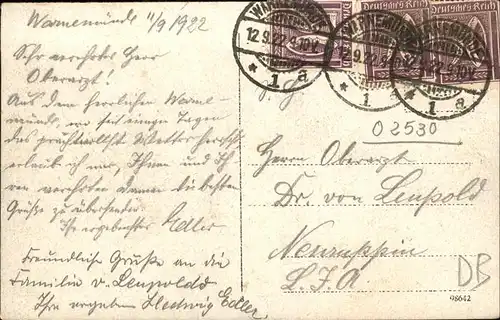 Warnemünde 11/9 1922
Sehr verehrter Herr
Oberarzt!
Aus dem herrlichen Warne-
münde, wo seit einigen Tagen
das prachtvollste Wetter herrscht
erlaube ich mir, Ihnen und Ih
ren verehrten Damen die besten
Grüße zu übersenden
Ihr ergebenster Edler
Freundliche Grüße an die
Familie v. Leupoldt
Ihre ergeben Hedwig Edler
WARNEMÜNDE
12.9.22.
1 a
Deutsches Reich
WARNEMÜNDE
9.22.
1
Deutsches Reich
WARNEMÜNDE
1 a
02530
Herrn Oberarzt
Dr. von Leupold
Neuruppin
L.I.A.
DB
98642